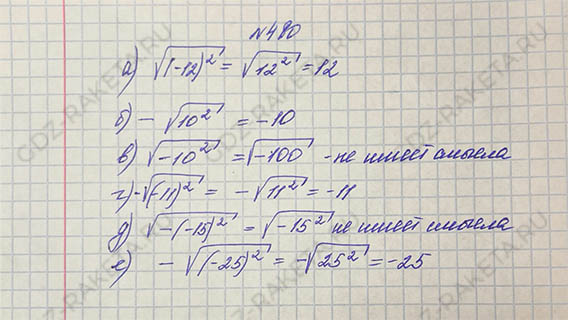 №480
а) √(-12)² = √12² = 12
б) - √10² = -10
в) √-10² = √-100 - не имеет смысла
г) -√(-11)² = -√11² = -11
д) √-(-15)² = √-15² не имеет смысла
е) - √(-25)² = -√25² = -25
GDZ-RAKETA.RU
GDZ-RAKETA.RU
GDZ-RAKETA.RU
GDZ-RAKETA.RU